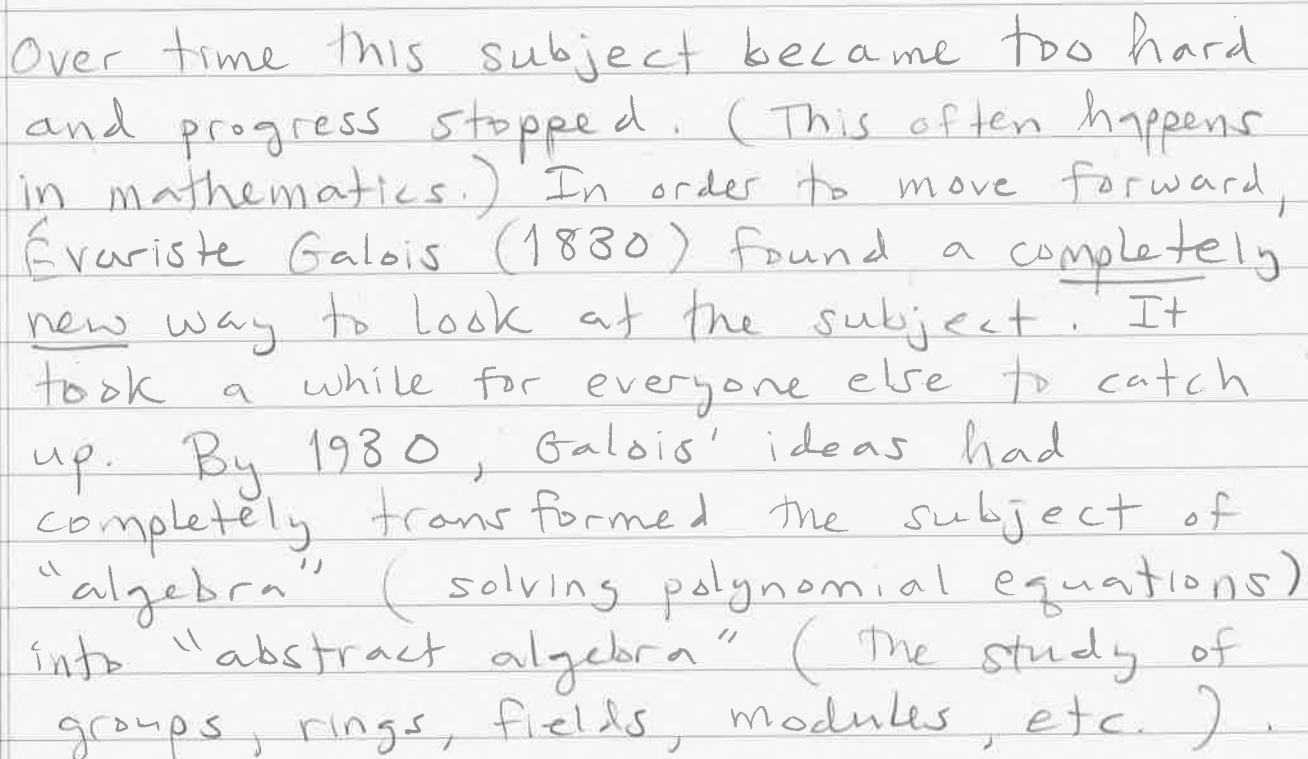 Over time this subject became too hard
and progress stopped. (This often happens
in mathematics.) In order to move forward,
Évariste Galois (1830) found a completely
new way to look at the subject. It
took a while for everyone else to catch
up. By 1930, Galois' ideas had
completely transformed the subject of
"algebra" (solving polynomial equations)
into "abstract algebra" (the study of
groups, rings, fields, modules, etc.).